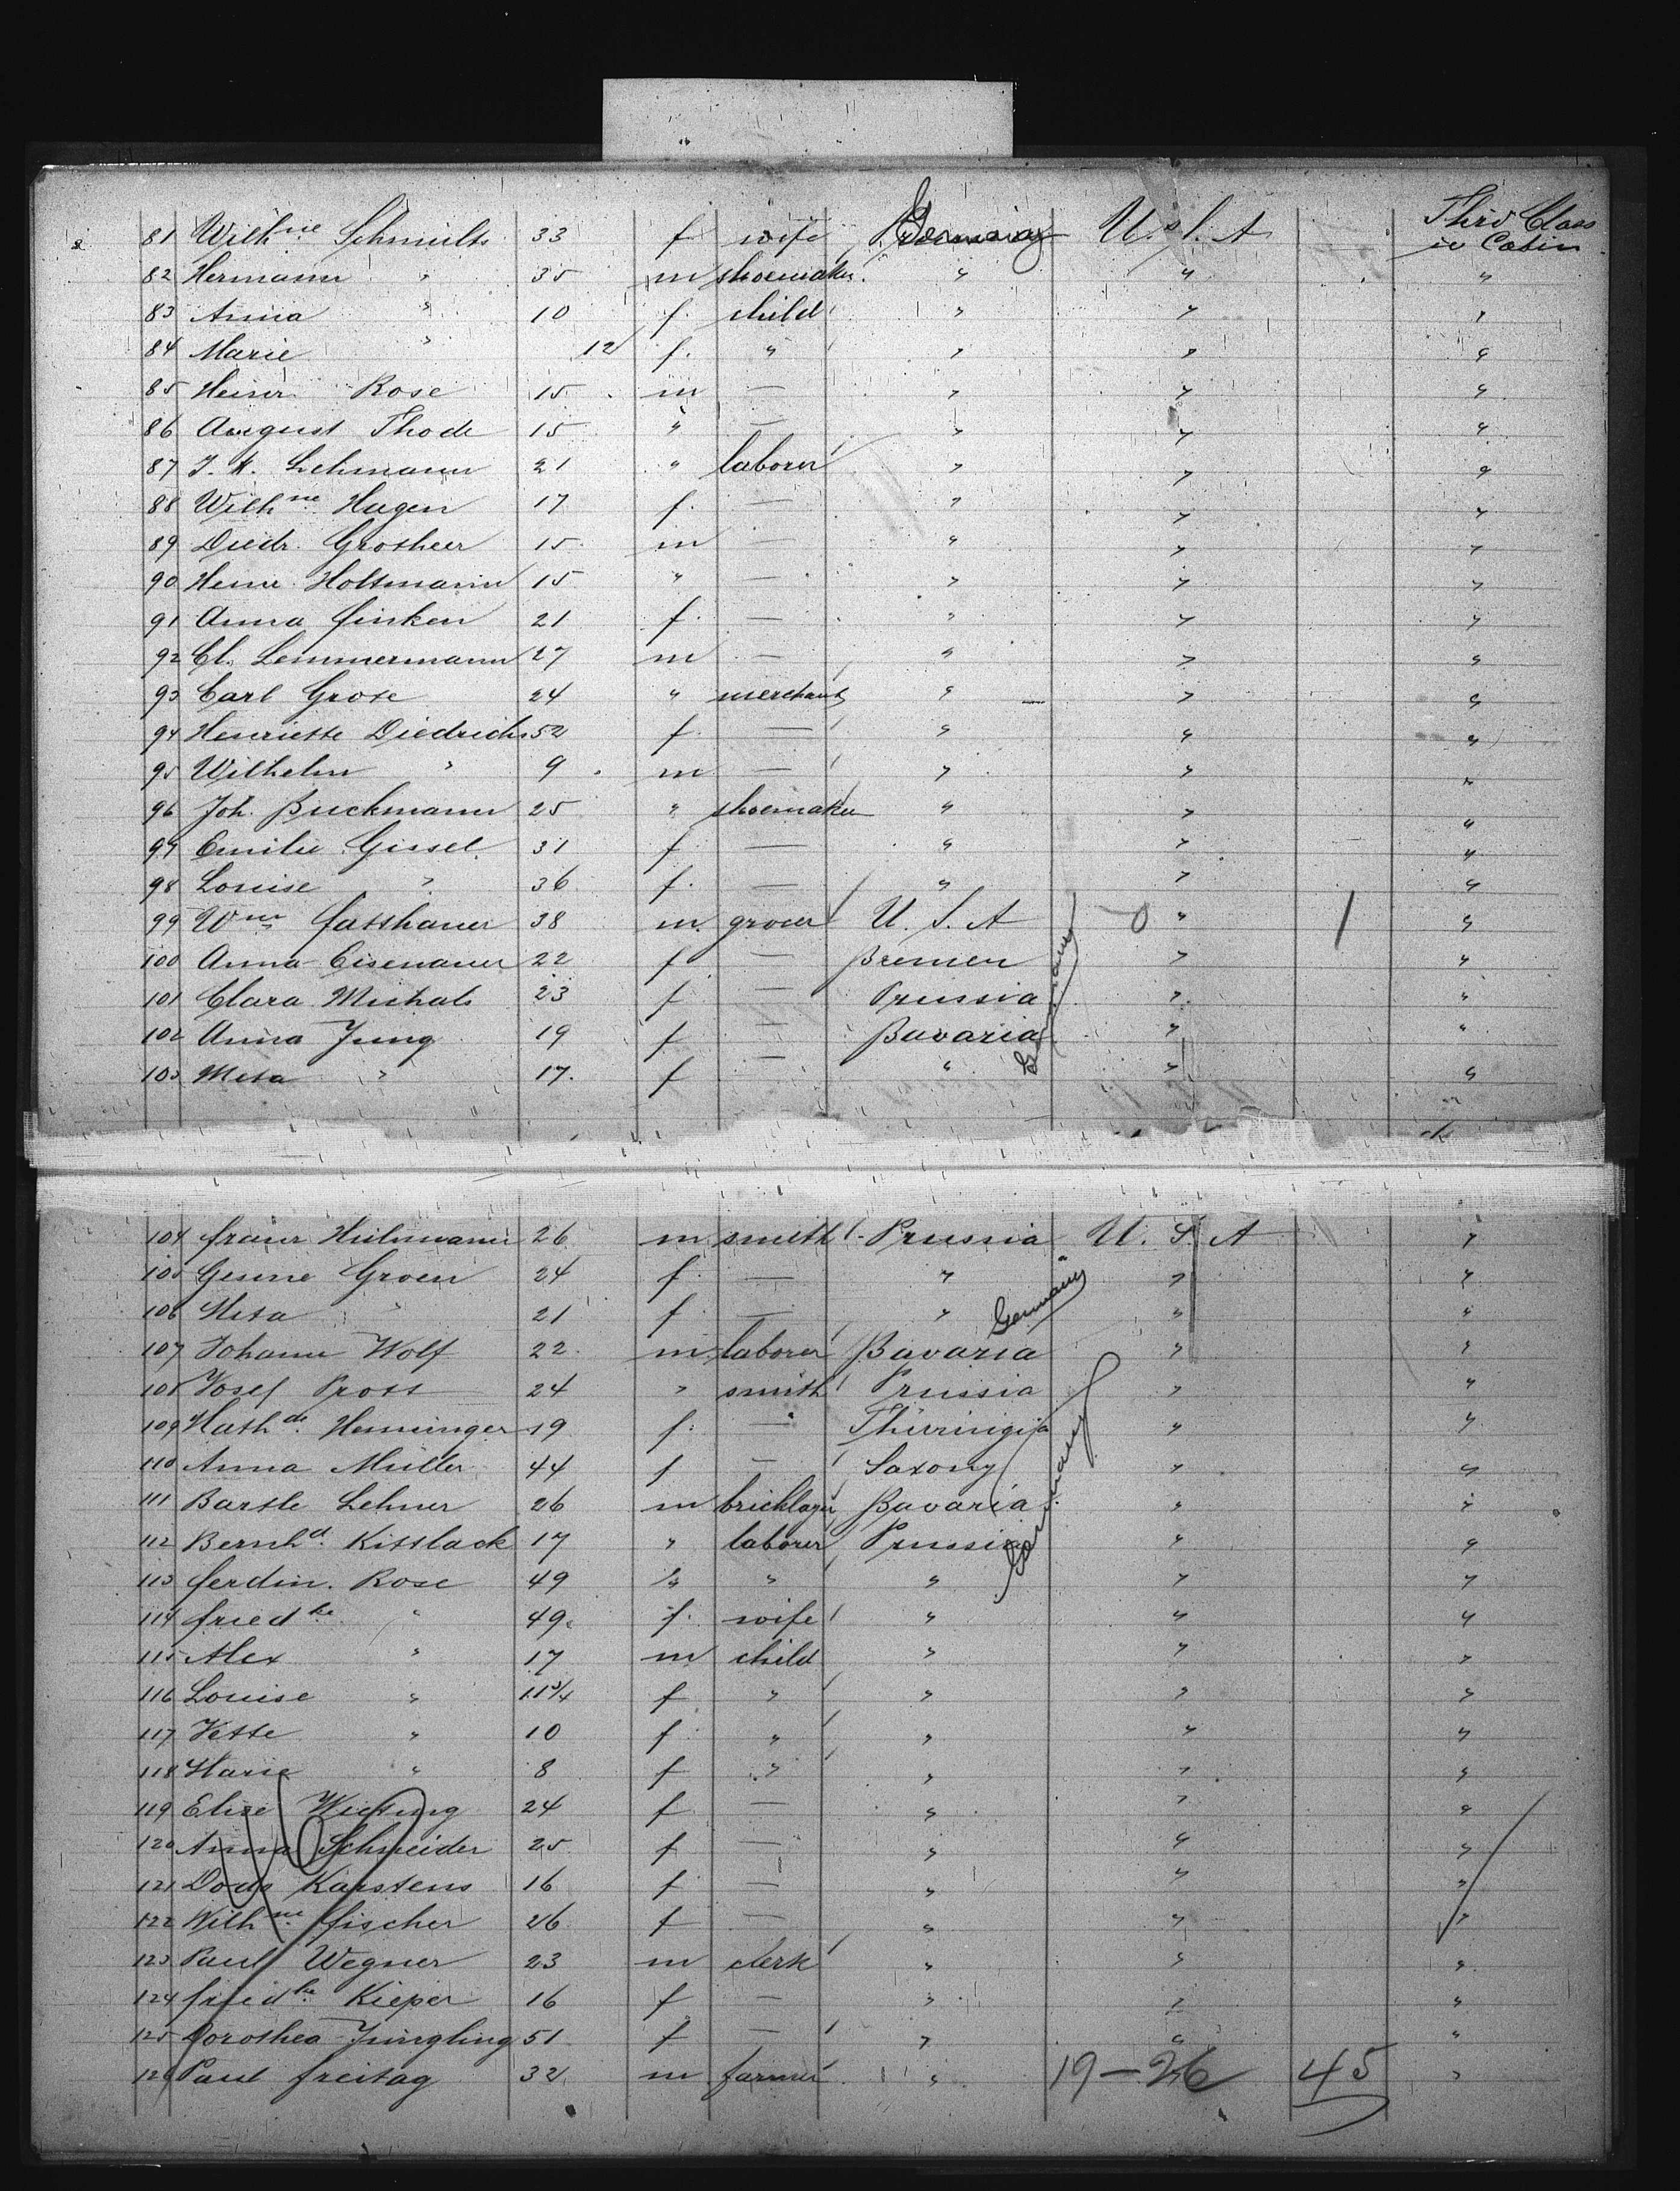 Third Class
81 Wilh ne Schmidts 33 f wife Germany U. S. A in Cabin
82 Hermann " 35 m shoemaker " " "
83 Anna " 10 f. child " " "
84 Marie " 12 f. " " " "
85 Heinr. Rose 15 m — " " "
86 August Thode 15 " — " " "
87 J. H. Lehmann 21 " laborer " " "
88 Wilh ne Hagen 17 f. — " " "
89 Diedr. Grotheer 15 m — " " "
90 Heinr. Holtmann 15 " — " " "
91 Anna Finken 21 f. — " " "
92 Cl. Lemmermann 27 m — " " "
93 Carl Grote 24 " merchant " " "
94 Henriette Diedrichs 52 f. — " " "
95 Wilhelm " 9 m — " " "
96 Joh. Buckmann 25 " shoemaker " " "
97 Emilie Gissel 31 f — " " "
98 Louise " 36 f. — " " "
99 Wm Fasshauer 38 m. grocer U. S. A 0 " 1 "
100 Anna Eisenauer 22 f — Bremen " "
101 Clara Michals 23 f — Prussia " "
102 Anna Jung 19 f — Bavaria " "
103 Meta " 17. f — " Germany " "
104 Heilmann 26 m smith Prussia U. S. A "
105 Gesine Groen 24 f. — " " "
106 Meta " 21 f. — " Germany " "
107 Johann Wolf 22 m laborer Bavaria " "
108 Josef Pross 24 " smith Prussia " "
109 Math de. Henninger 19 f. — Thüringia " "
110 Anna Müller 44 f — Saxony " "
111 Barth Lehner 26 m bricklayer Bavaria " "
112 Bernhd. Kisslack 17 " laborer Prussia Germany " "
113 Ferdin. Rose 49 " " " " "
114 Fried ke " 49 f. wife " " "
115 Alex " 17 m child " " "
116 Louise " 11 3/4 f " " " "
117 Jette " 10 f " " " "
118 Marie " 8 f " " " "
119 Elise Wieting 24 f — " " "
120 Anna Schneider 25 f — " " "
121 Karstens 16 f — " " "
122 Wilh ne Fischer 26 f — " " "
123 Paul Wegner 23 m clerk " " "
124 Fried ke Kieper 16 f — " " "
125 Dorothea Jüngling 51 f — " " "
126 Paul Freitag 32 m farmer " 19-26 45 "